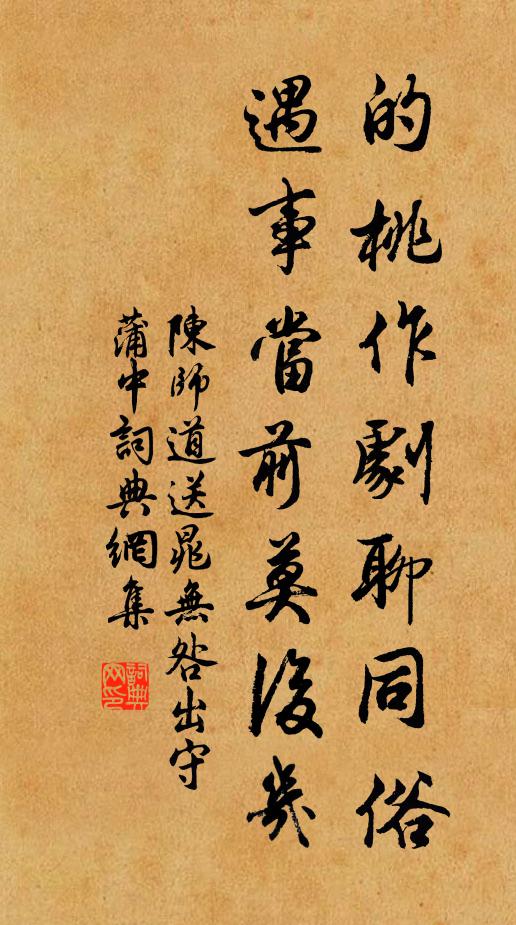 的桃作劇聊同俗
遇事當前莫後幾
陳師道送晁無咎出守
蒲中詞典網集
詞典
网印